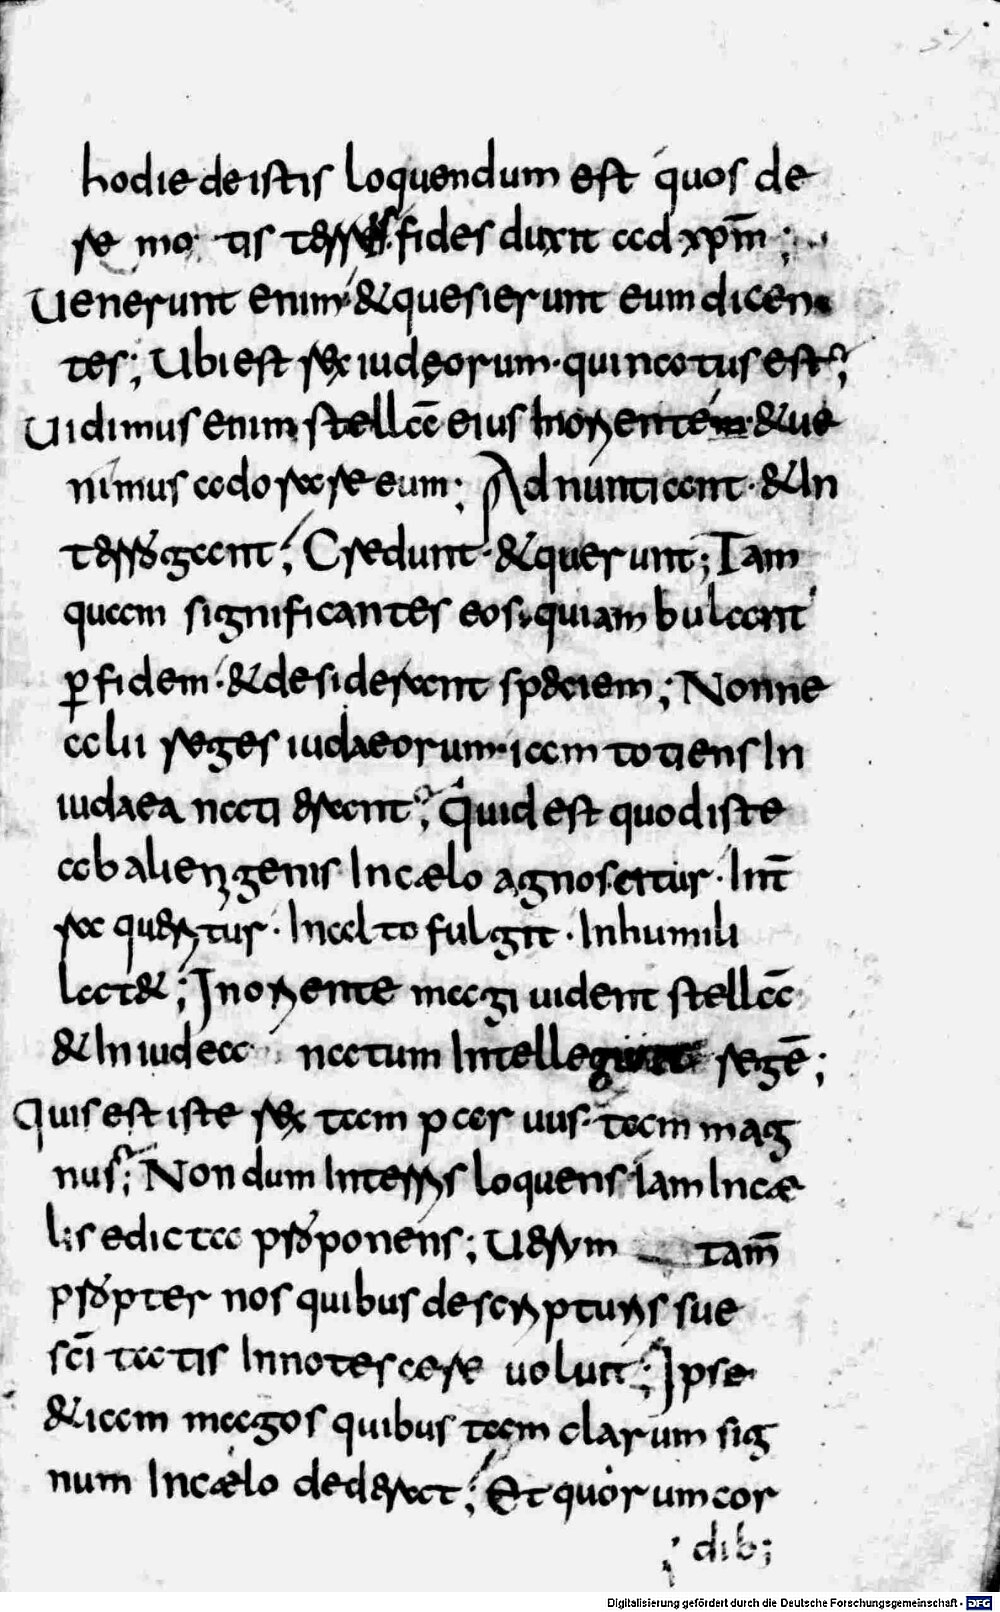 hodie de istis loquendum est quos de
remotis terris fides duxit ad xp̄m;
Uenerunt enim & quesierunt eum dicen
tes; Ubi est rex iudęorum. qui natus est;
Uidimus enim stellā eius In orientem & ue
nimus adorare eum; Adnuntiant. & In
terrogant; Credunt. & querunt; Tam
quam significantes eos. qui ambulant
p̱ fidem. & desiderant speciem; Nonne
alii reges iudaeorum. iam totiens In
iudaea nati erant; Quid est quod iste
ab alienigenis In cælo agnoscitur. In t̄
ra queritur. In alto fulgit. In humili
latet; In oriente magi uident stellā
& In iudea natum Intellegunt regē;
Quis est iste rex tam paruus. tam mag
nus; Nondum In terris loquens. iam In cæ
lis edicta proponens; Uerum tam̄
propter nos quibus de scripturis sue
sc̄i tatis Innotescere uoluit; Ipse
& iam magos quibus tam clarum sig
num In cælo dederat; Et quorum cor
dib;
Digitalisierung gefördert durch die Deutsche Forschungsgemeinschaft - DFG